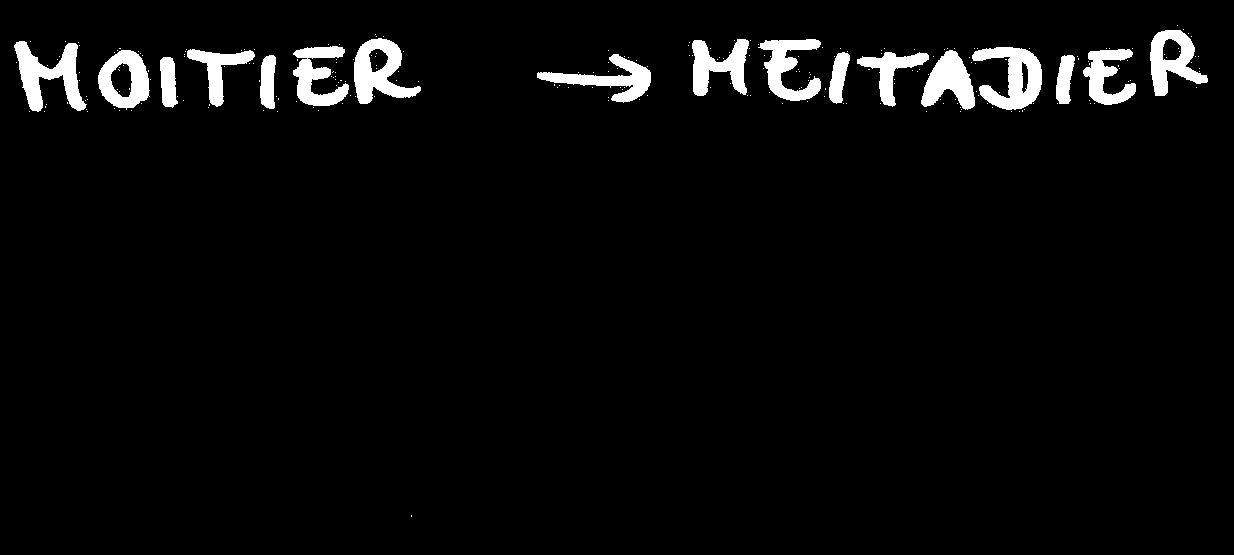 MOITIER → MEITADIER